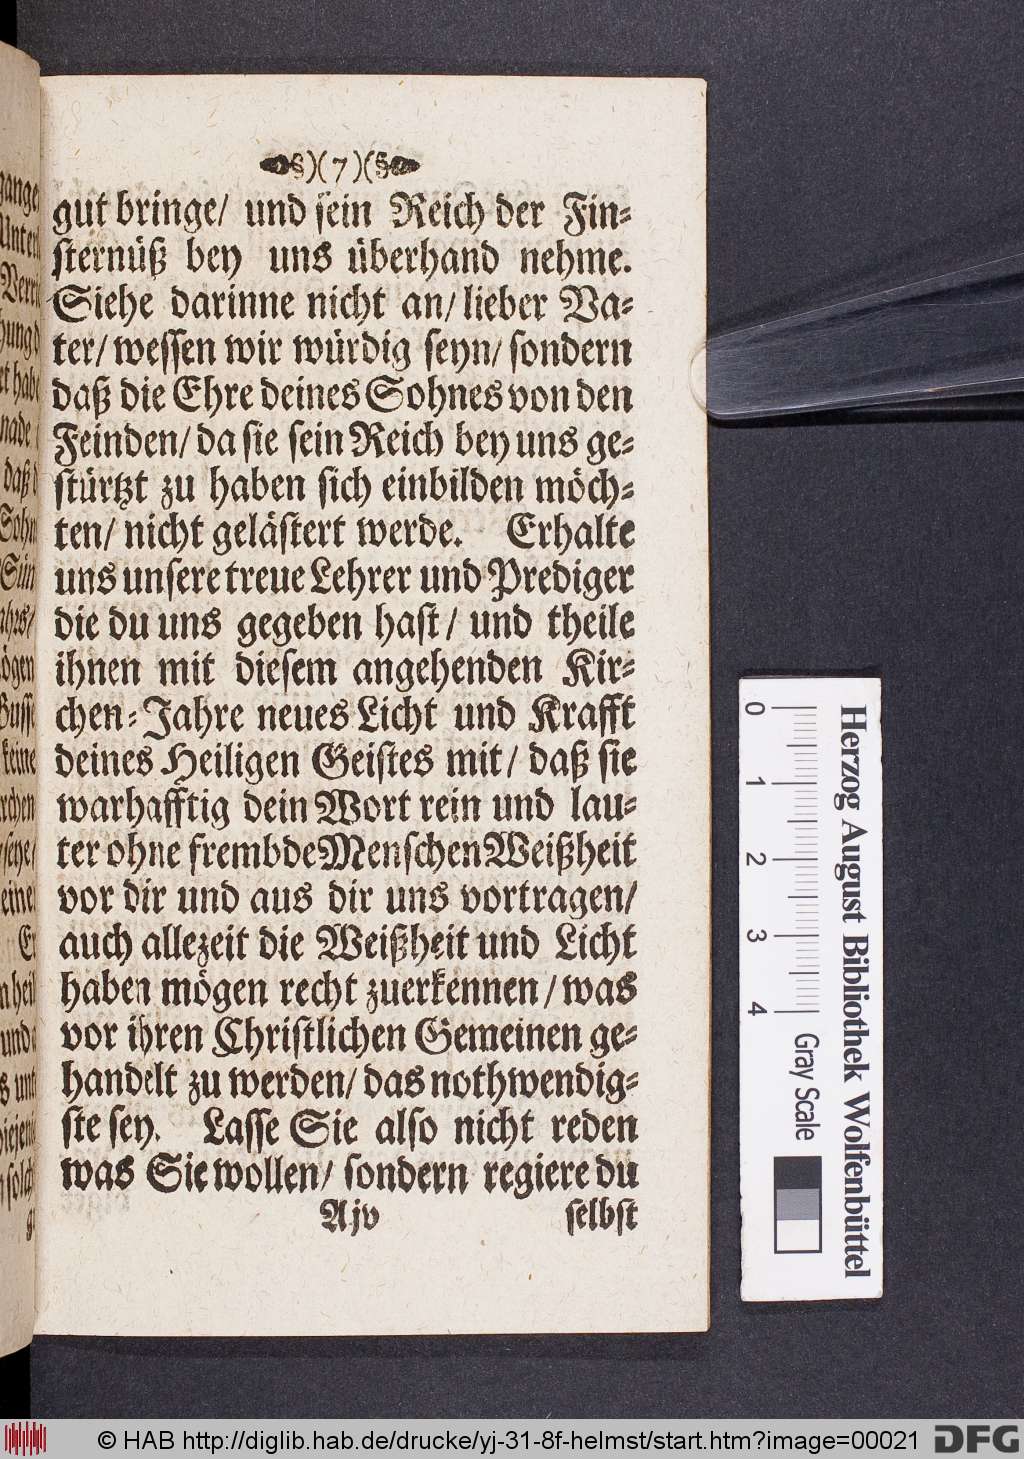 §)(7)(§
gut bringe/ und sein Reich der Fin-
sternüß bey uns überhand nehme.
Siehe darinne nicht an/ lieber Va-
ter/ wessen wir würdig seyn/ sondern
daß die Ehre deines Sohnes von den
Feinden/ da sie sein Reich bey uns ge-
stürtzt zu haben sich einbilden möch-
ten/ nicht gelästert werde. Erhalte
uns unsere treue Lehrer und Prediger
die du uns gegeben hast/ und theile
ihnen mit diesem angehenden Kir-
chen-Jahre neues Licht und Krafft
deines Heiligen Geistes mit/ daß sie
warhafftig dein Wort rein und lau-
ter ohne frembde Menschen Weißheit
vor dir und aus dir uns vortragen/
auch allezeit die Weißheit und Licht
haben mögen recht zuerkennen/ was
vor ihren Christlichen Gemeinen ge-
handelt zu werden/ das nothwendig-
ste sey. Lasse Sie also nicht reden
was Sie wollen/ sondern regiere du
Ajv selbst
Herzog August Bibliothek Wolfenbüttel
0 1 2 3 4 Gray Scale
© HAB http://diglib.hab.de/drucke/yj-31-8f-helmst/start.htm?image=00021
DFG